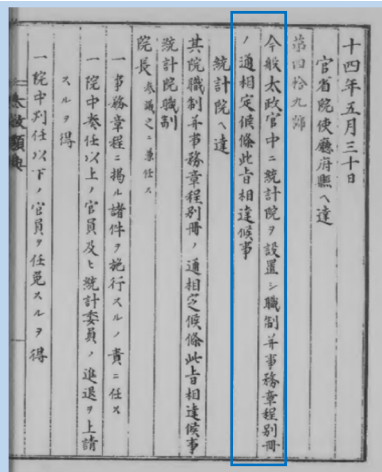 十四年五月三十日
官省院使廳府縣ヘ達
第四拾九號
今般太政官中ニ統計院ヲ設置シ職制并事務章程別冊
ノ通相定候條此旨相達候事
統計院ヘ達
其院職制并事務章程別冊ノ通相定候條此旨相達候事
統計院職制
院長 参議之ニ兼任ス
一事務章程ニ掲ル諸件ヲ施行スルノ責ニ任ス
一院中奏任以上ノ官員及ヒ統計委員ノ進退ヲ上請
スルヲ得
一院中判任以下ノ官員ヲ任免スルヲ得
太政類典